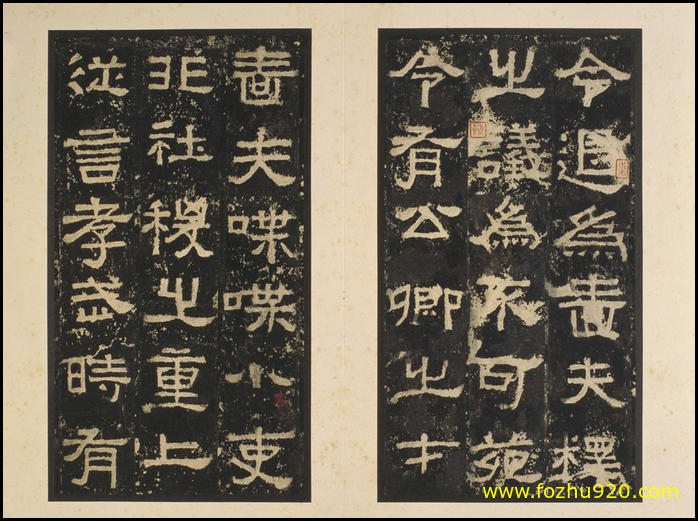 令退為嗇夫釋
之議為不可苑
令有公卿之才
嗇夫喋喋小吏
非社稷之重上
從言孝武時有
www.fozhu920.com